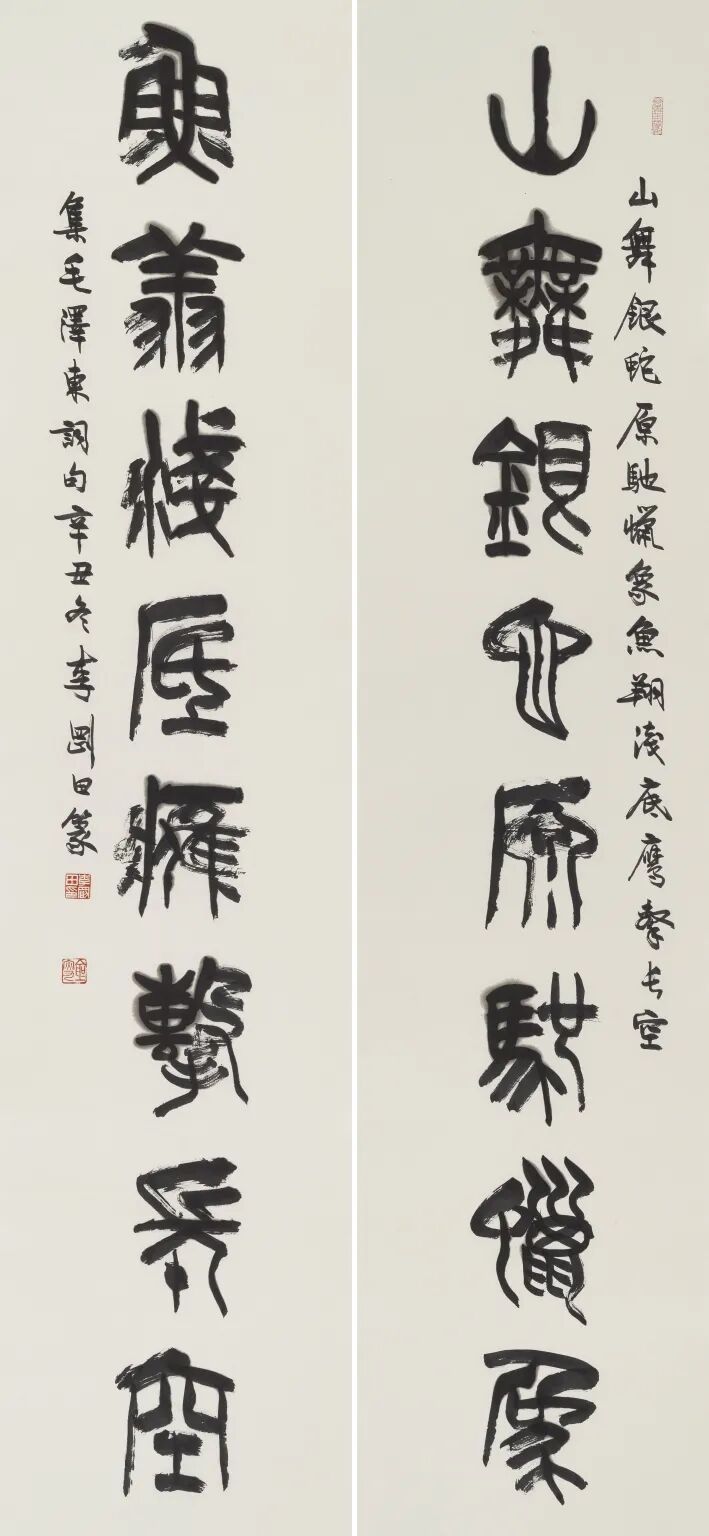 山舞銀蛇原馳蠟象魚翔淺底鷹擊長空
山舞銀蛇原馳蠟象
魚翔淺底鷹擊長空
集毛澤東詞句辛丑冬李剛田篆